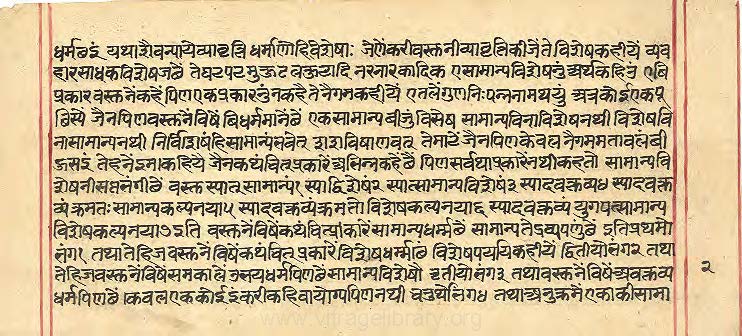 धर्मछइं यथाशैवन्यायेव्याटत्ति धर्माणोहिविशेषाः जेणेंकरीवस्तनीव्याटत्तिकीजैते विशेषकहीयें व्यव
हारसाधकविशेषजछें तेघटपटमुकुटवक्रत्यादि नरनारकादिक एसामान्यविशेषनुं अर्थकहिउं एबि
प्रकारवस्तनेंकहें पिणएकप्रकारनुंनकहै तेनैगमकहीयें एतलेंगुणनिःपन्ननामथयुं अत्रकोईएक
जैनपिणवस्तनेंविषें बिधर्ममानेंछें एकसामान्यबीजुंविसेष सामान्यविनाविशेषनथी विशेषवि
नासामान्यनथी निर्विशेषंहिसामान्यंभवेत् शशविषाणवत् तेमाटें जैनपिणकेवलनैगममतावलंबी
ऊसइं तेहनेंइंमकहिये जैनकथंचित्प्रकारें अभिन्नकहेंछें पिणसर्वथाप्रकारेंनथीकहतो सामान्यवि
शेषनीसप्तभंगीछें वस्तस्यात्सामान्यं१ स्याद्विशेषं२ स्यात्सामान्यविशेषं३ स्यादवक्तव्य४ स्यादवक्त
व्यंक्रमतःसामान्यकल्पनया५ स्यादवक्तव्यंक्रमतोविशेषकल्पनया६ स्यादवक्तव्यं युगपत्सामान्य
विशेषकल्पनया७इति वस्तनेंविषेंकथंचित्प्रकारेंसामान्यधर्मछें सामान्यतेद्रव्यपणुंछें इतिप्रथमो
भंगः१ तथातेहिजवस्तनेंविषेंकथंचित्प्रकारेंविशेषधर्मछें विशेषपर्यायकहीयें द्वितीयोभंग२ तथा
तेहिजवस्तनेंविषेंसमकालेंउभयधर्मपिणछें सामान्यविशेषो तृतीयोभंग३ तथावस्तनेंविषेंअवक्तव्य
धर्मपिणछें केवलएककोईइंकरीकहिवायोग्यपिणनथी चतुर्थोभंग४ तथाअनुक्रमेंएकाकीसामा
२
www.vitragelibrary.org